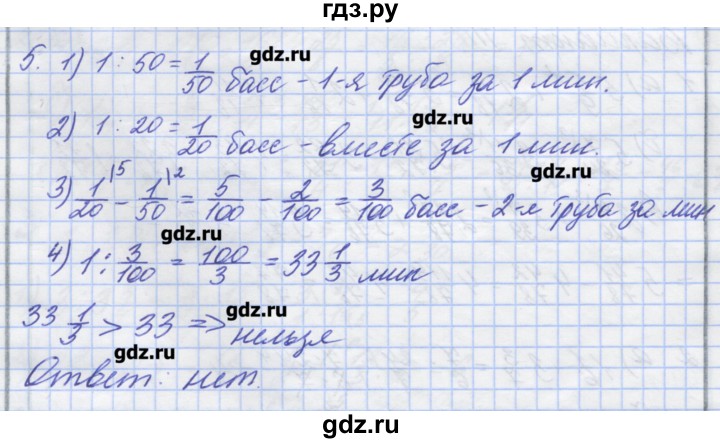 гдз.ру
gdz.ru
5. 1) 1 : 50 = 1/50 басс – 1-я труба за 1 мин.
gdz.ru
2) 1 : 20 = 1/20 басс – вместе за 1 мин.
gdz.ru
3) 1/20 |5 – 1/50 |2 = 5/100 – 2/100 = 3/100 басс – 2-я труба за мин
gdz.ru
4) 1 : 3/100 = 100/3 = 33 1/3 мин
gdz.ru
33 1/3 > 33 => нельзя
gdz.ru
Ответ: нет.
gdz.ru